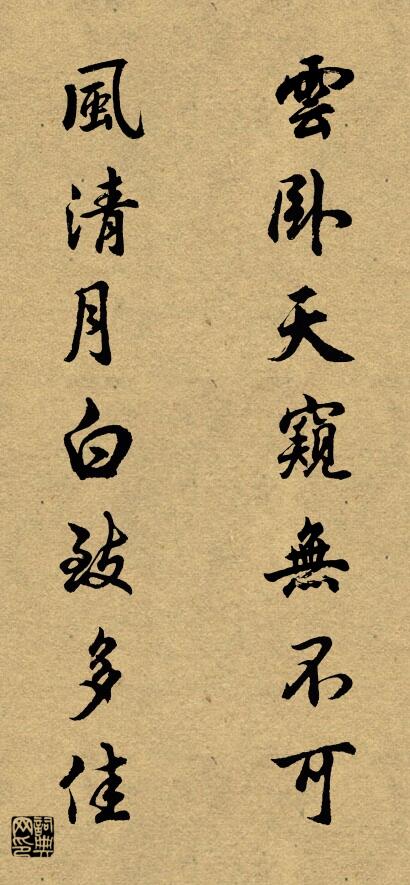 雲臥天窺無不可
風清月白致多佳
詞典网印